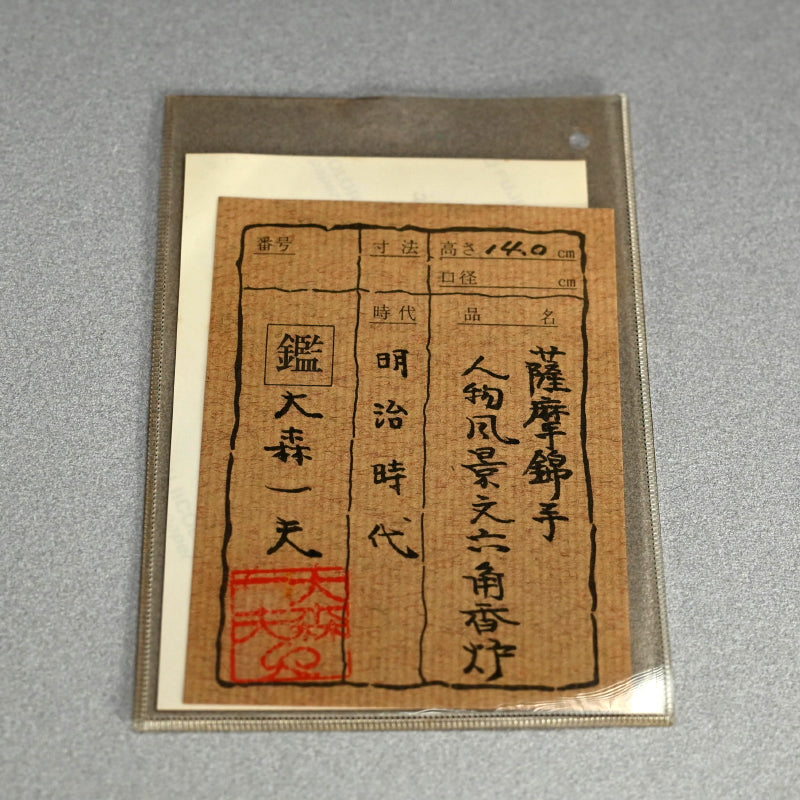 高さ 14.0 cm
口径 cm
品名
薩摩錦手
人物风景文六角香炉
寸法
時代
明治時代
番号
鑑
大森一夫